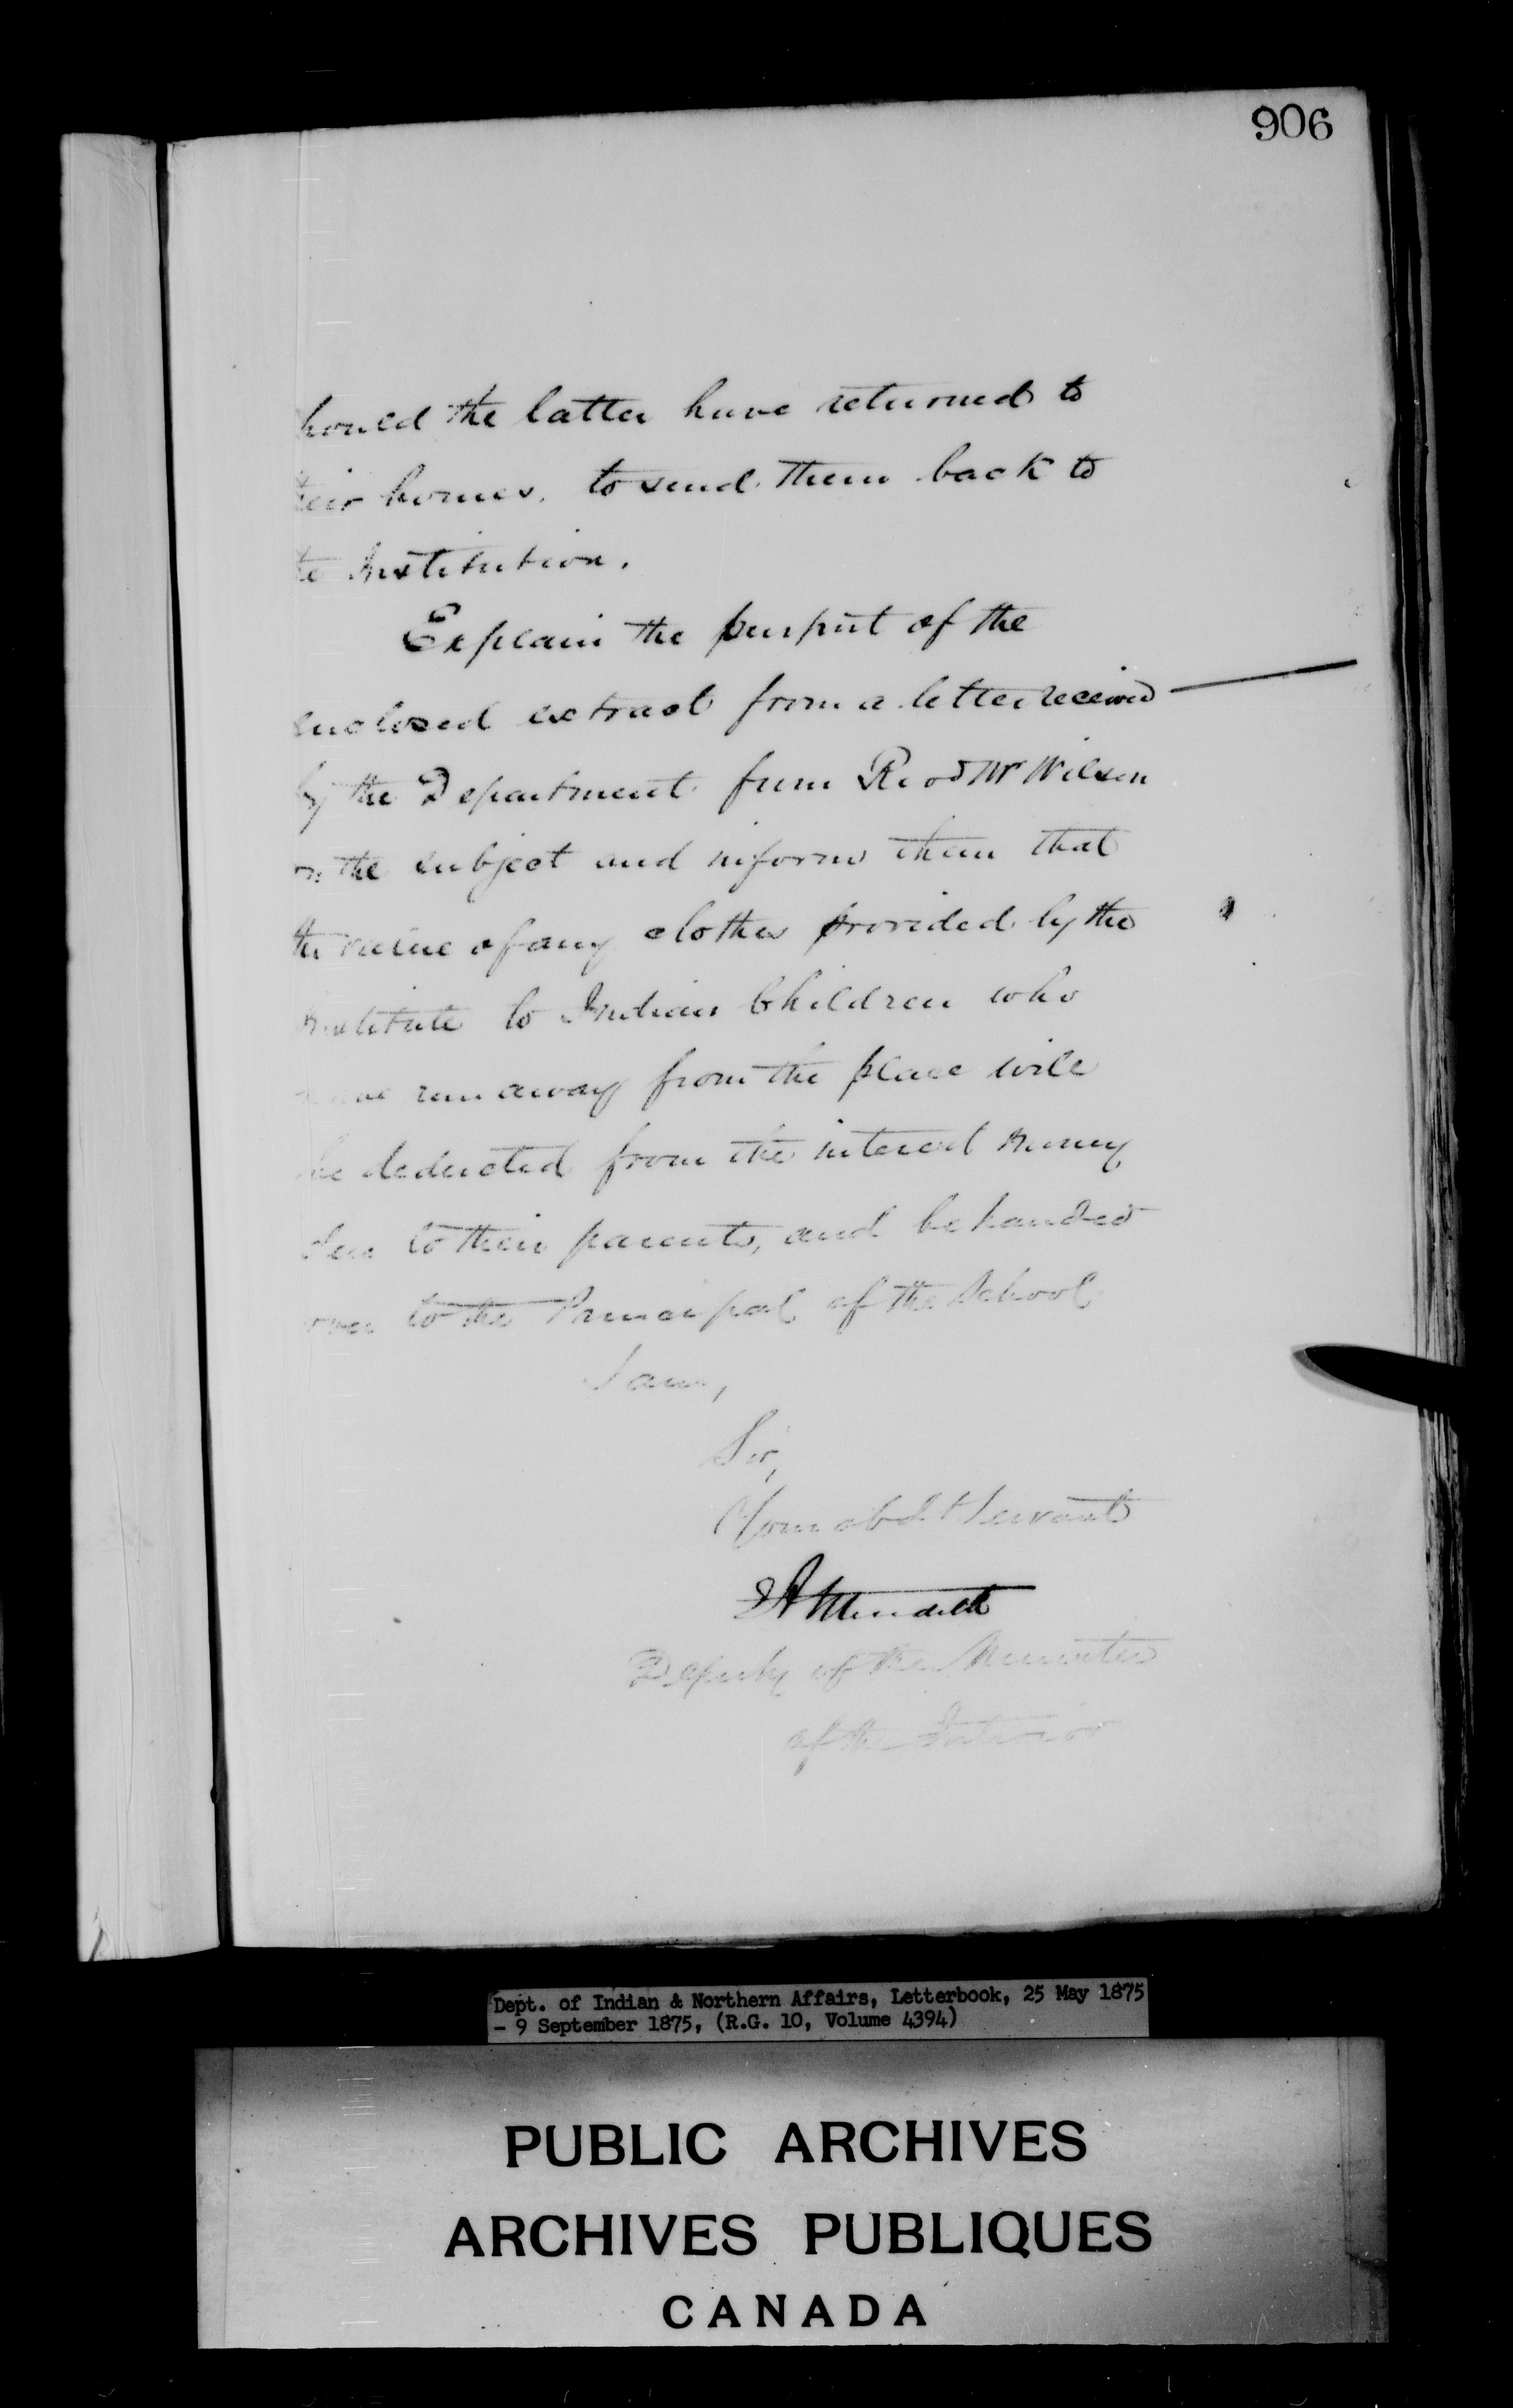 906
hould the latter have returned to
eir homes, to send them back to
te Institution.
Explain the purport of the
enclosed extract from a letter received
by the Department from Revd Mr Wilson
on the subject and inform them that
the value of any clothes provided by the
Institute to Indian Children who
run away from the place will
be deducted from the interest money
due to their parents, and be handed
over to the Principal of the School
I am,
Sir,
Your obdt Servant
Deputy of the Minister
of the Interior
Dept. of Indian & Northern Affairs, Letterbook, 25 May 1875
- 9 September 1875, (R.G. 10, Volume 4394)
PUBLIC ARCHIVES
ARCHIVES PUBLIQUES
CANADA